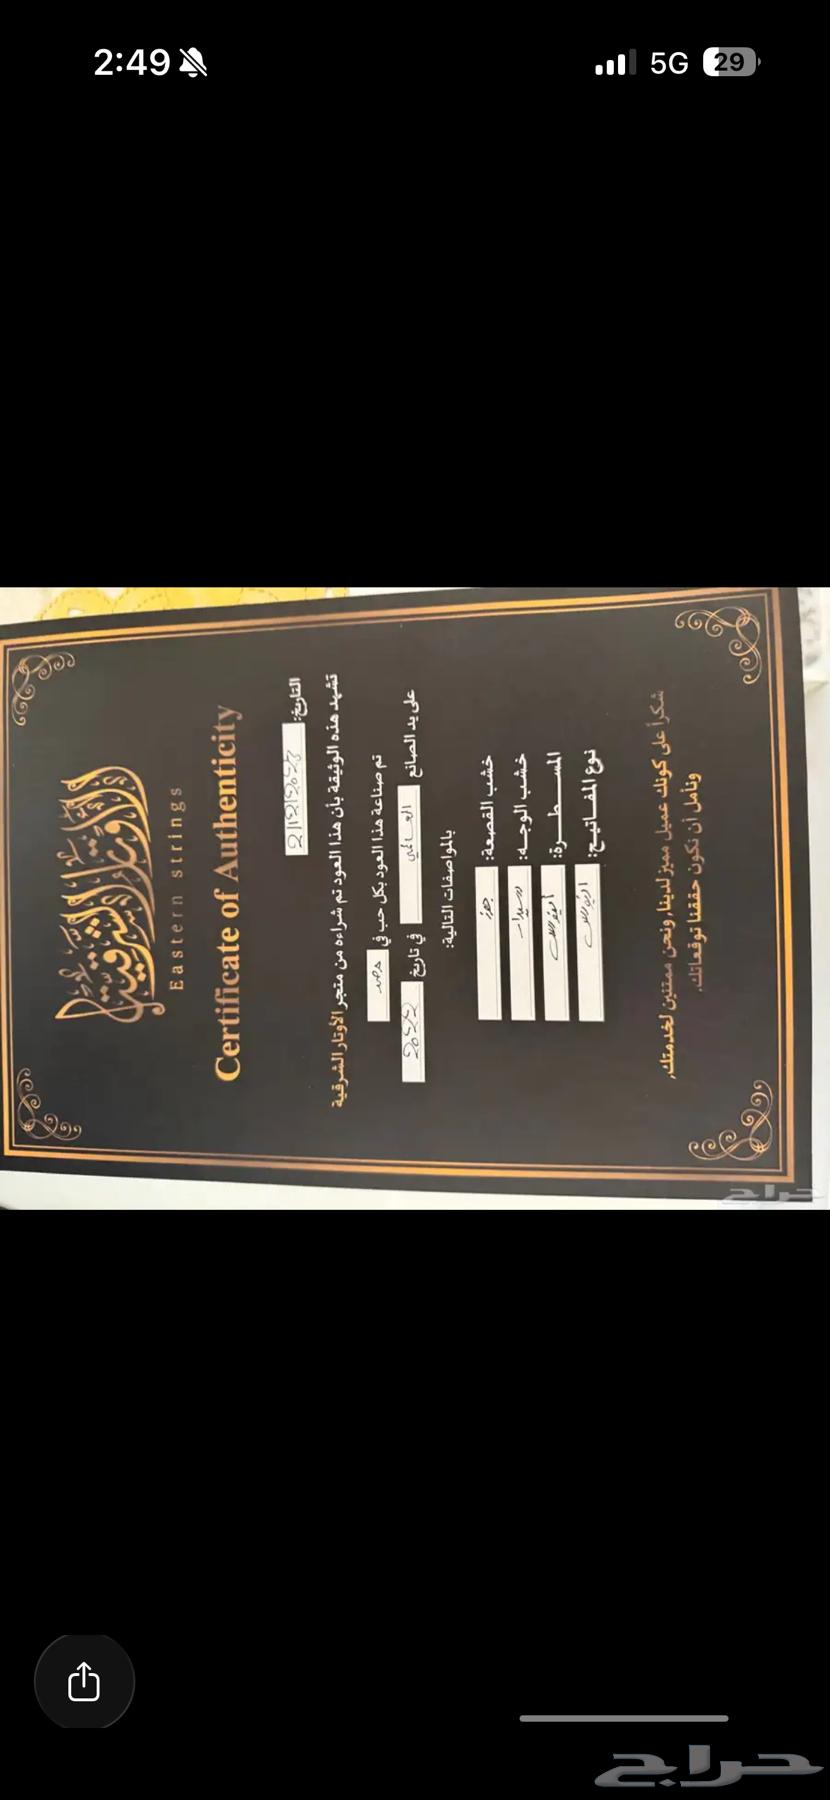 2:49
5G
29
الأوتار الشرقية
Eastern strings
Certificate of Authenticity
التاريخ: 2/12/2023
تشهد هذه الوثيقة بأن هذا العود تم شراءه من متجر الأوتار الشرقية
تم صناعة هذا العود بكل حب في مصر
على يد الصانع العالمي في تاريخ 2022
بالمواصفات التالية:
خشب القصعة:
خشب الوجه: سيدار
المسطرة: ابنوس
نوع المفاتيح: ابنوس
شكراً على كونك عميل مميز لدينا, ونحن ممتنين لخدمتك,
ونأمل أن نكون حققنا توقعاتك.
حراج
حراج